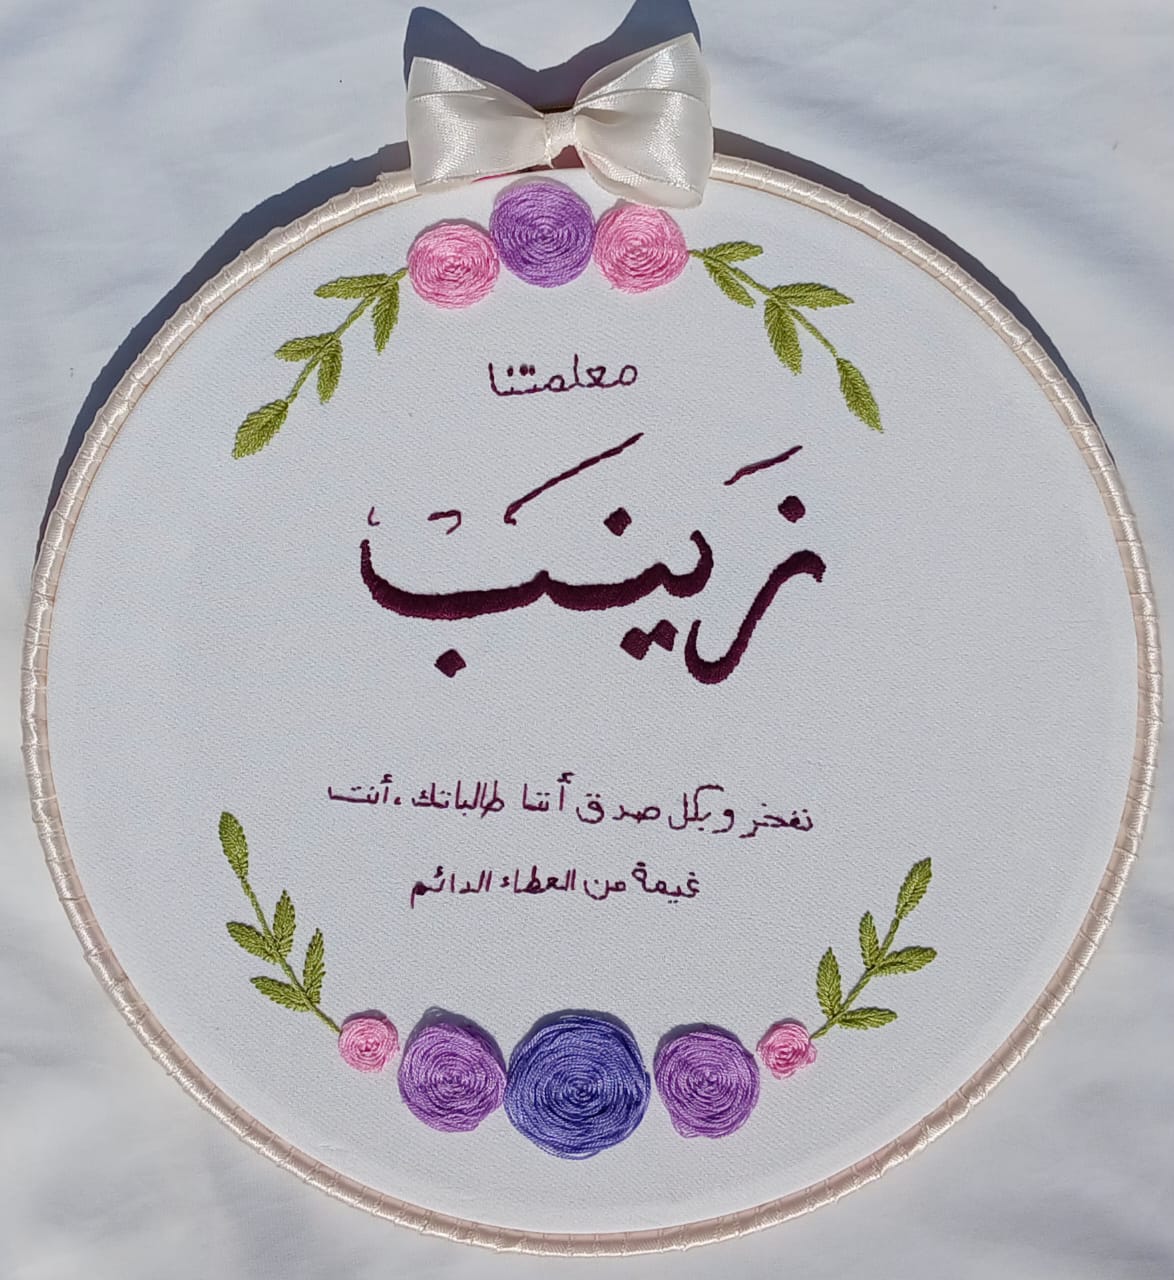 معلمتنا
زينب
نفخر وبكل صدق أننا طالباتك، أنت
غيمة من العطاء الدائم